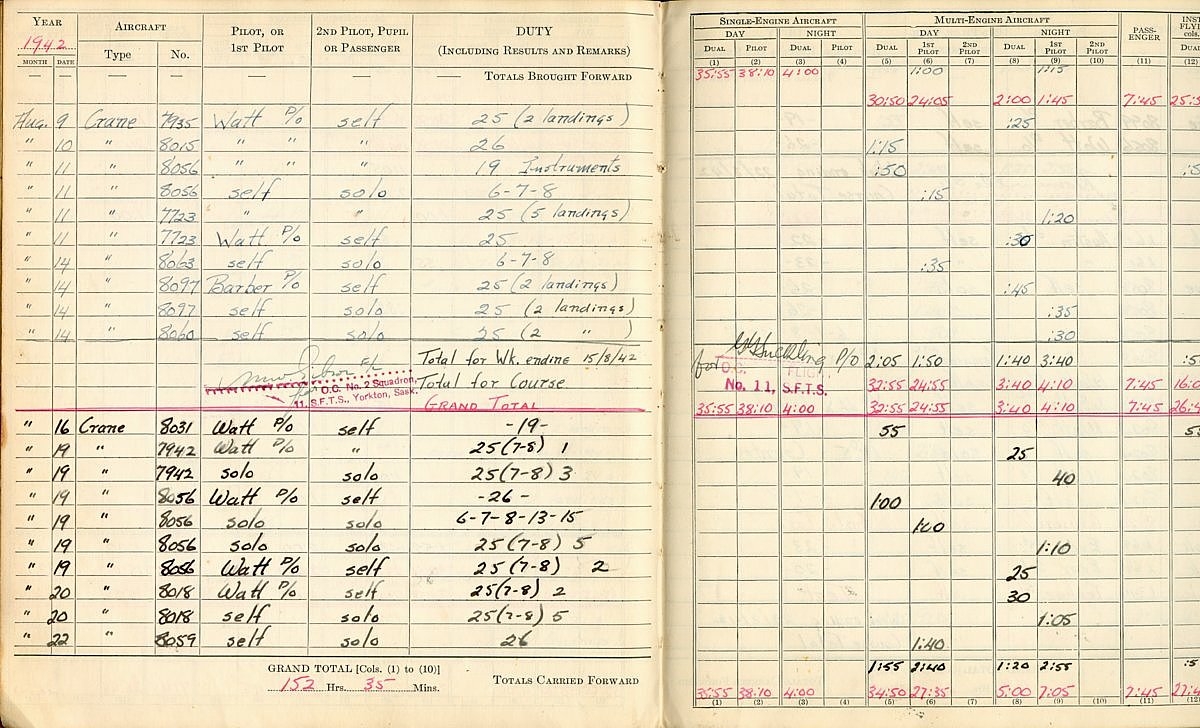 YEAR AIRCRAFT PILOT, OR 1ST PILOT 2ND PILOT, PUPIL OR PASSENGER DUTY (INCLUDING RESULTS AND REMARKS) SINGLE-ENGINE AIRCRAFT MULTI-ENGINE AIRCRAFT PASSENGER
1942 Type No. DAY NIGHT DAY NIGHT
MONTH DATE DUAL PILOT DUAL PILOT DUAL 1ST PILOT 2ND PILOT DUAL 1ST PILOT 2ND PILOT
(1) (2) (3) (4) (5) (6) (7) (8) (9) (10) (11) (12)
— — — — — — — TOTALS BROUGHT FORWARD 35:55 38:10 4:00 1:00 1:15
30:50 24:05 2:00 1:45 7:45
Aug. 9 Crane 7935 Watt P/o self 25 (2 landings) :25
" 10 " 8015 " " " 26 1:15
" 11 " 8056 " " " 19 Instruments :50
" 11 " 8056 self solo 6-7-8 :15
" 11 " 7723 " " 25 (5 landings) 1:20
" 11 " 7723 Watt P/o self 25 :30
" 14 " 8063 self solo 6-7-8 :35
" 14 " 8097 Barber P/o self 25 (2 landings) :45
" 14 " 8097 self solo 25 (2 landings) :35
" 14 " 8060 self solo 25 (2 " ) :30
Total for Wk. ending 15/8/42 for P/o 2:05 1:50 1:40 3:40
for O.C. No. 2 Squadron, Total for Course O.C. FLIGHT 32:55 24:55 3:40 4:10 7:45
11. S.F.T.S., Yorkton, Sask. GRAND TOTAL No. 11, S.F.T.S. 35:55 38:10 4:00 32:55 24:55 3:40 4:10 7:45
" 16 Crane 8031 Watt P/o self -19- 55
" 19 " 7942 Watt P/o " 25(7-8) 1 25
" 19 " 7942 solo solo 25(7-8) 3 40
" 19 " 8056 Watt P/o self -26- 1:00
" 19 " 8056 solo solo 6-7-8-13-15 1:00
" 19 " 8056 solo solo 25(7-8) 5 1:10
" 19 " 8056 Watt P/o self 25(7-8) 2 25
" 20 " 8018 Watt P/o self 25(7-8) 2 30
" 20 " 8018 self solo 25(7-8) 5 1:05
" 22 " 8059 self solo 26 1:40
GRAND TOTAL [Cols. (1) to (10)] 1:55 2:40 1:20 2:55
152 Hrs. 35 Mins. TOTALS CARRIED FORWARD 35:55 38:10 4:00 34:50 27:35 5:00 7:05 7:45
(1) (2) (3) (4) (5) (6) (7) (8) (9) (10) (11) (12)